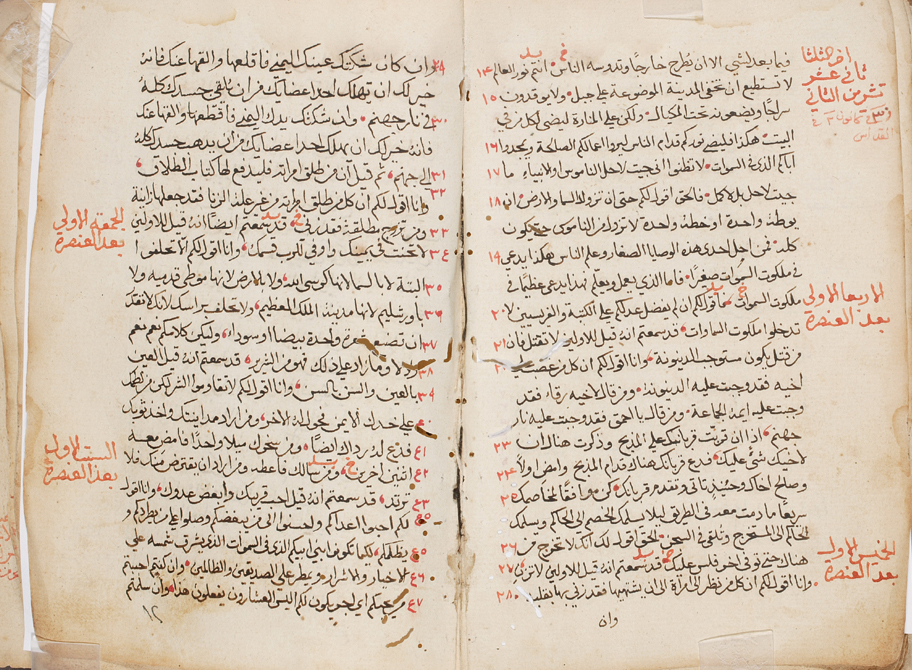 فيما بعد لشي الا ان يُطرح خارجًا وتدوسه الناس انتم نور العالم ١٤
لا تستطيع ان تخفي المدينة الموضوعة علي جبل ولا يوقدون ١٥
سراجًا ويضعونه تحت المكيال ولكن علي المنارة ليضي لكل من في
البيت هكذا فليضي نوركم قدام الناس ليروا اعمالكم الصالحة ويمجدوا ١٦
اباكم الذي في السموات لا تظنوا اني جيت لاحل الناموس او الانبياء ما ١٧
جيت لاحل بل لاكمل فالحق اقول لكم حتي ان تزول السما والارض ان ١٨
يوطة واحدة او خطة واحدة لا تزول من الناموس حتي يكون
كله فمن احل احدي هذه الوصايا الصغار وعلم الناس هكذا يدعي ١٩
في ملكوت السموات صغيرًا فاما الذي يعمل ويعلم فهذا يدعي عظيمًا في
ملكوت السموات فاقول لكم ان لم يفضل عدلكم علي الكتبة والفريسيين لا ٢٠
تدخلوا ملكوت السماوات قد سمعتم انه قيل للاولين لا تقتل فان ٢١
من قتل يكون مستوجب الدينونة وانا اقول لكم ان كل من غضب علي
اخيه فقد وجبت عليه الدينونة ومن قال لاخيه رقا فقد
وجبت عليه ايمة الجماعة ومن قال يا احمق فقد وجبت عليه نار
جهنم اذا ان قربت قربانك علي المذبح وذكرت هناك ان ٢٣
لاخيك شي عليك فدع قربانك هناك قدام المذبح وامض اولًا ٢٤
وصالح اخاك وحينيذٍ تاتي وتقدم قربانك كن موافقًا لخاصمك ٢٥
سريعًا ما دمت معه في الطريق ليلا يسلمك الخصم الي الحاكم ويسلمك
الحاكم الي المستخرج وتلقي في السجن الحق اقول لك انك لا تخرج من ٢٦
هناك حتي توفي اخر فلس عليك قد سمعتم انه قيل للاولين لا تزنِ ٢٧
وانا اقول لكم ان كل من نظر الي امراة الي ان يشتهيها فقد زني بها بقلبه ٢٨
وان
الاربعا الاولي
بعد العنصرة
الخميس الاول
بعد العنصرة
٢٩ وان كان شككك عينك اليمني فاقلعها والقها عنك فانه
خير لك ان يهلك احد اعضايك من ان يلقي جسدك كله
٣٠ في نار جهنم وان شككتك يدك اليمني فاقطعها والقها عنك
فانه خير لك ان يهلك احد اعضايك من ان يذهب جسدك كله
٣١ الي جهنم ثم قيل ان من طلق امراته فليدفع لها كتاب الطلاق
٣٢ وانا اقول لكم ان كل من طلق امراته من غير علة الزنا فقد جعلها زانية
٣٣ ومن تزوج مطلقة فقد زني قد سمعتم ايضًا انه قيل للاولين
٣٤ لا تحنث في يمينك واوفي للرب قسمك وانا اقول لكم لا تحلفوا
٣٥ البتة لا بالسما لانها كرسي الله ولا بالارض لانها موطي قدميه ولا
٣٦ باورشليم لانها مدينة الملك العظيم ولا تحلف براسك لانك لا تقدر
٣٧ ان تصنع شعرة واحدة بيضا او سودا وليكن كلامكم نعم نعم
٣٨ ولا لا وما زاد علي ذلك فهو من الشرير قد سمعتم انه قيل العين
٣٩ بالعين والسن بالسن وانا اقول لكم لا تقاوموا الشر لكن من لطمك
٤٠ علي خدك الايمن فحول له الاخر ومن اراد مداينتك واخذ ثوبك
٤١ فدع له رداك ايضًا ومن سخرك ميلا واحدًا فامض معه
٤٢ اثنين اخرين ومن سالك فاعطه ومن اراد ان يقترض منك فلا
٤٣ ترتد قد سمعتم انه قيل احب قريبك وابغض عدوك وانا اقول
لكم احبوا اعداكم واحسنوا الي من يبغضكم وصلوا علي من يطردكم و
٤٥ يظلمكم لكيما تكونوا بني ابيكم الذي في السموات الذي يشرق شمسه علي
٤٦ الاخيار والاشرار ويمطر علي الصديقين والظالمين وان كنتم احببتم
٤٧ من يحبكم اي اجر يكون لكم اليس العشارون يفعلون هذا وان سلمتم
الجمعة الاولي
بعد العنصرة
السبت الاول
بعد العنصرة
١٢